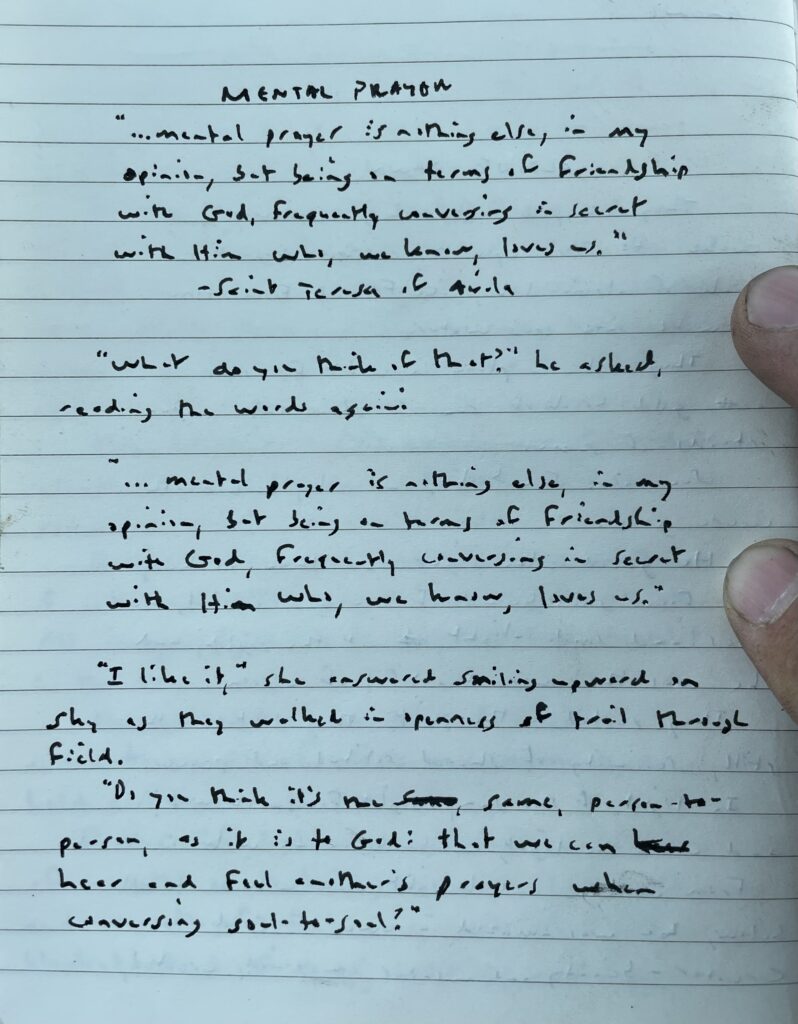 MENTAL PRAYER
"...mental prayer is nothing else, in my
opinion, but being on terms of friendship
with God, frequently conversing in secret
with Him who, we know, loves us."
-Saint Teresa of Avila
"What do you think of that?" he asked,
reading the words again:
"... mental prayer is nothing else, in my
opinion, but being on terms of friendship
with God, frequently conversing in secret
with Him who, we know, loves us."
"I like it," she answered smiling upward on
sky as they walked in openness of trail through
field.
"Do you think it's the same, person-to-
person, as it is to God: that we can
hear and feel another's prayers when
conversing soul-to-soul?"